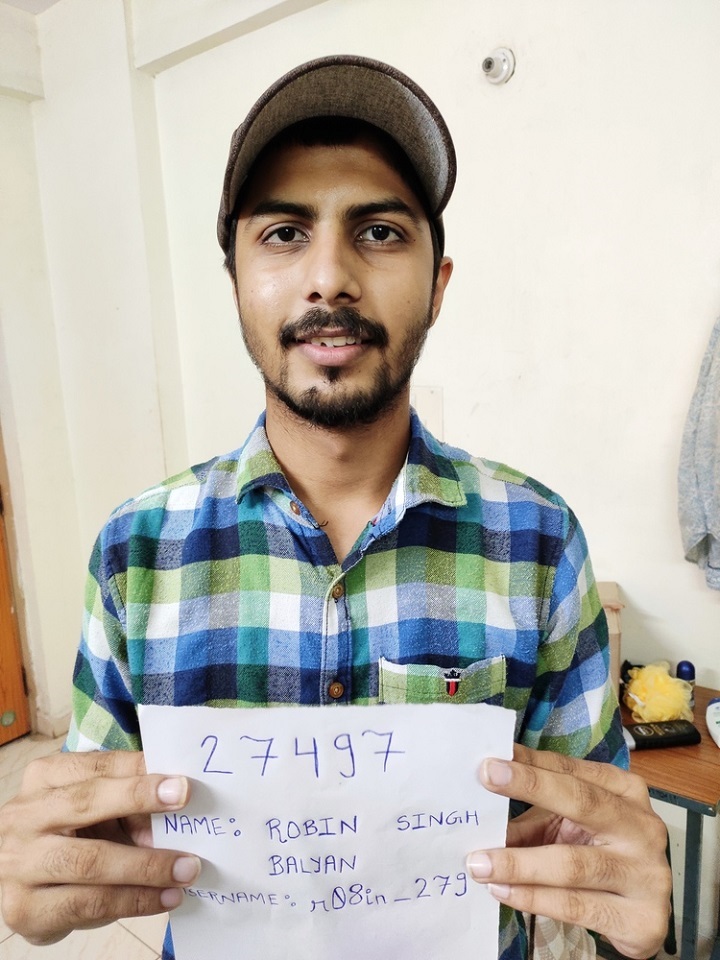 27497
NAME: ROBIN SINGH
BALYAN
USERNAME: r08in_279